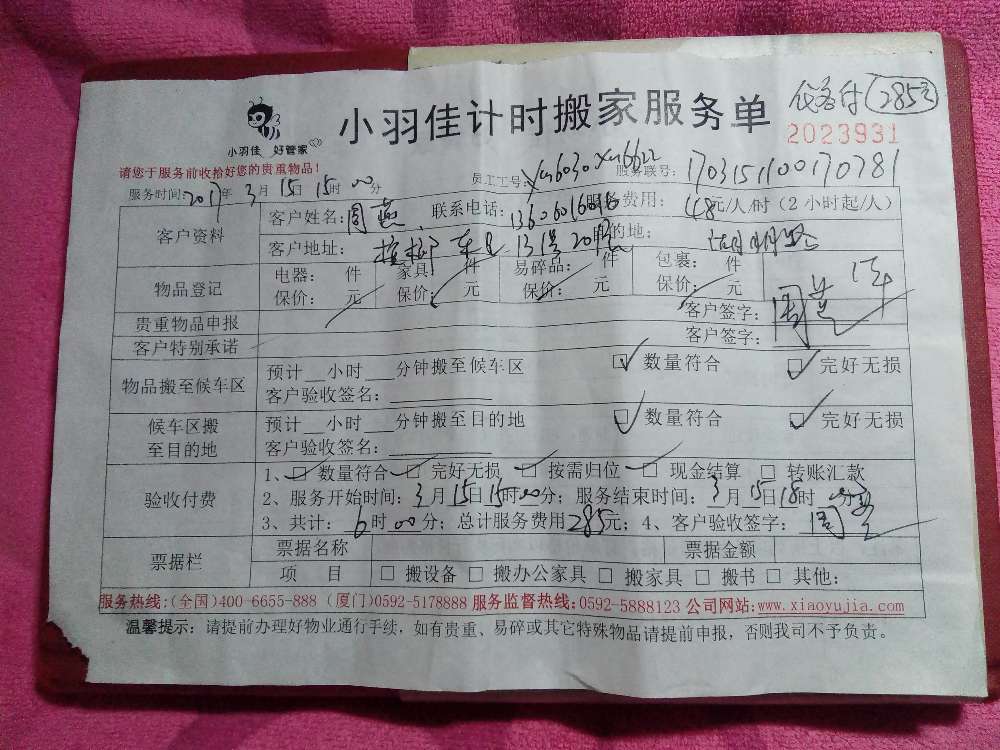 小羽佳 好管家
小羽佳计时搬家服务单
代客付 285元
2023931
请您于服务前收拾好您的贵重物品！
服务时间：2017年3月15日15时00分 员工工号： 服务联号：1703151100170781
客户资料
客户姓名：周燕 联系电话： 服务费用：48元/人/时（2小时起/人）
客户地址： 目的地：
物品登记
电器： 件 家具： 件 易碎品： 件 包裹： 件
保价： 元 保价： 元 保价： 元 保价： 元
贵重物品申报 客户签字：周燕
客户特别承诺 客户签字：
物品搬至候车区
预计__小时___分钟搬至候车区 ☑ 数量符合 ☑ 完好无损
客户验收签名：
候车区搬至目的地
预计__小时___分钟搬至目的地 ☑ 数量符合 ☑ 完好无损
客户验收签名：
验收付费
1、☑ 数量符合 ☑ 完好无损 ☑ 按需归位 ☑ 现金结算 □ 转账汇款
2、服务开始时间：3月15日15时00分；服务结束时间：3月15日18时00分
3、共计：6时00分；总计服务费用285元；4、客户验收签字：周燕
票据栏
票据名称 票据金额
项 目 □ 搬设备 □ 搬办公家具 □ 搬家具 □ 搬书 □ 其他：
服务热线：(全国)400-6655-888 (厦门)0592-5178888 服务监督热线：0592-5888123 公司网站：www.xiaoyujia.com
温馨提示：请提前办理好物业通行手续，如有贵重、易碎或其它特殊物品请提前申报，否则我司不予负责。